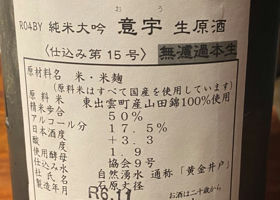 おう
R04BY 純米大吟 意宇 生原酒
〈仕込み第15号〉 無濾過本生
原材料名 米・米麹
(原料米はすべて国産を使用しています)
原料米 東出雲町産山田錦100%使用
精米歩合 50%
アルコール分 17.5%
日本酒度 +3.3
酸度 1.9
使用酵母 協会9号
仕込み水 自然湧水 通称「黄金井戸」
杜氏名 石原丈径
製造年月 R6.11
お酒は二十歳から